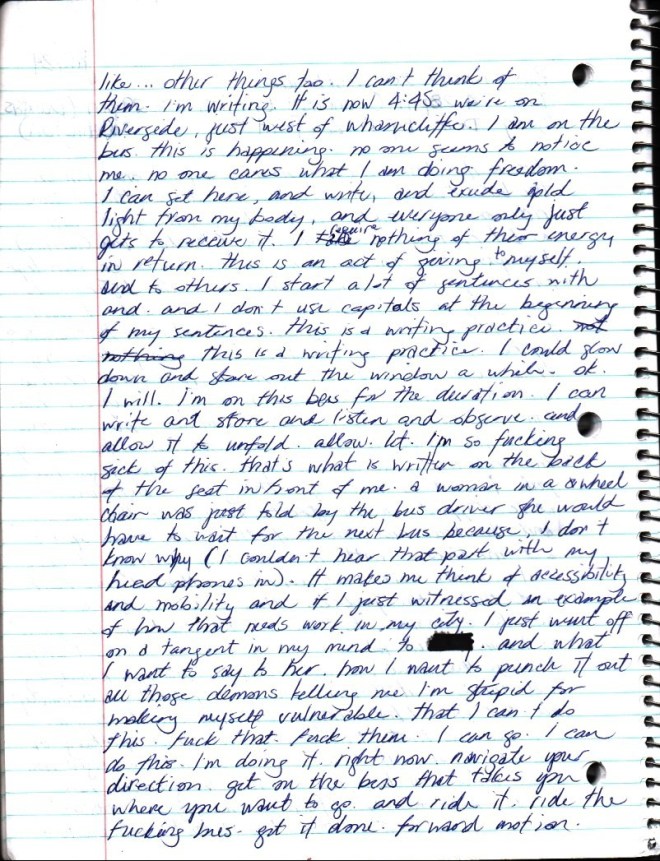 like... other things too. I can't think of
them. I'm writing. It is now 4:45 we're on
Riverside, just west of wharncliffe. I am on the
bus. this is happening. no one seems to notice
me. no one cares what I am doing. freedom.
I can set here, and write, and exude gold
light from my body, and everyone only just
gets to receive it. I require nothing of their energy
in return. this is an act of giving to myself.
and to others. I start a lot of sentences with
and. and I don't use capitals at the beginning
of my sentences. this is a writing practice. not
nothing this is a writing practice. I could slow
down and stare out the window a while. ok.
I will. I'm on this bus for the duration. I can
write and stare and listen and observe. and
allow it to unfold. allow. let. I'm so fucking
sick of this. that's what is written on the back
of the seat in front of me. a woman in a wheel
chair was just told by the bus driver she would
have to wait for the next bus because, I don't
know why (I couldn't hear that part with my
head phones in). It makes me think of accessibility
and mobility and if I just witnessed an example
of how that needs work in my city. I just went off
on a tangent in my mind to . and what
I want to say to her. how I want to punch it out
all those demons telling me I'm stupid for
making myself vulnerable. that I can't do
this. fuck that. fuck them. I can go. I can
do this. I'm doing it. right now. navigate your
direction. get on the bus that takes you
where you want to go. and ride it. ride the
fucking bus. get it done. forward motion.